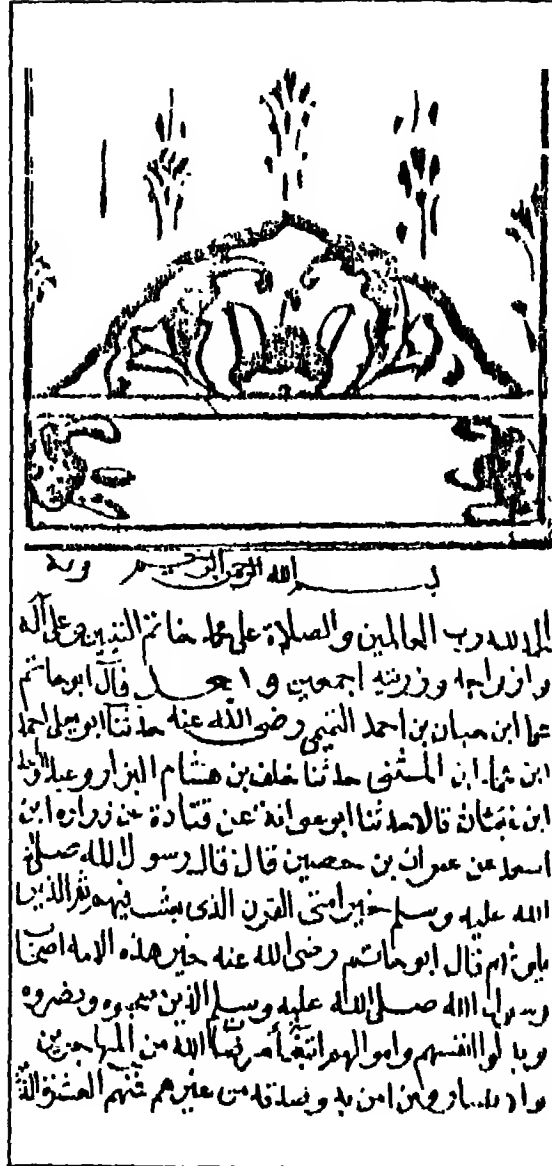 بسم الله الرحمن الرحيم وبه
الحمد لله رب العالمين والصلاة على محمد خاتم النبيين وعلى آله
وازواجه وذريته اجمعين و بعد قال ابو حاتم
محمد ابن حبان بن احمد التميمي رضى الله عنه حدثنا ابو يعلى احمد
ابن على ابن المثنى حدثنا خلف بن هشام البزار وعبد الواحد
ابن غياث قالا حدثنا ابو عوانة عن قتادة عن زرارة ابن
عن عمران بن حصين قال قال رسول الله صلى
الله عليه وسلم خير امتى القرن الذى بعثت فيهم ثم الذين
يلونهم قال ابو حاتم رضى الله عنه خير هذه الامة اصحاب
رسول الله صلى الله عليه وسلم الذين صحبوه ونصروه
وبذلوا انفسهم واموالهم الله من المهاجرين
والانصار ومن امن به وصدقه من غيرهم